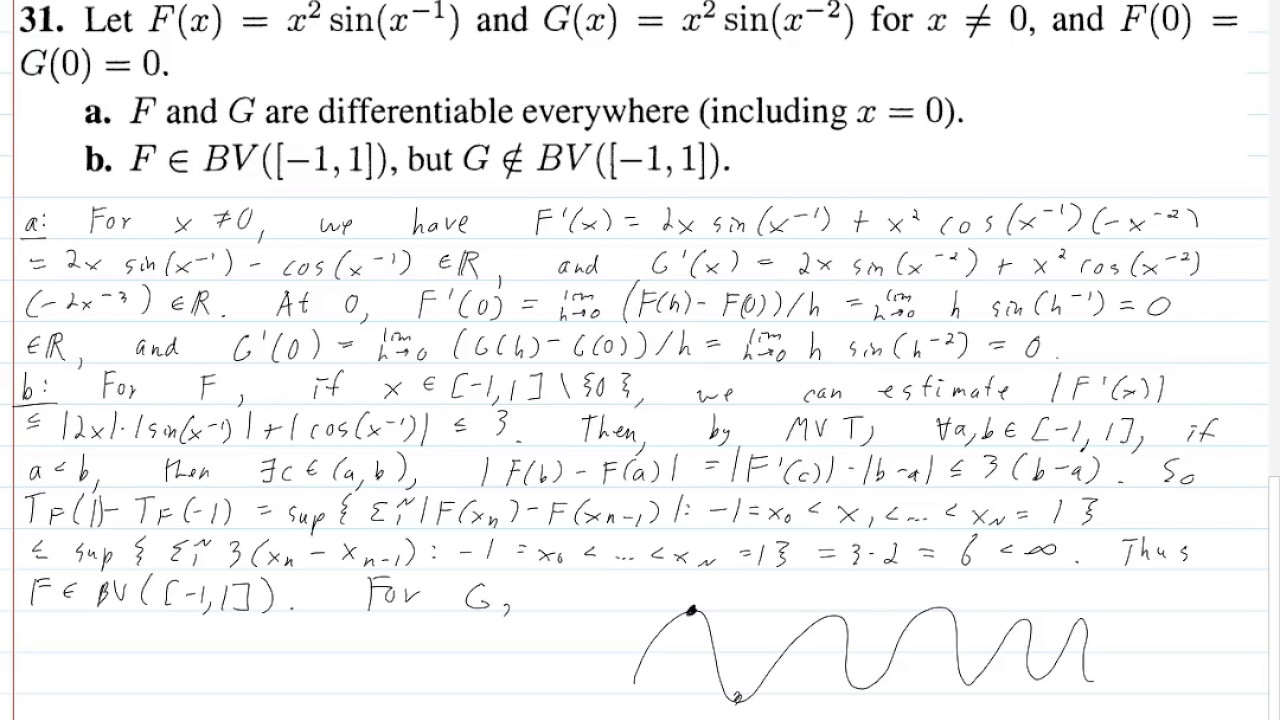 31. Let F(x) = x² sin(x⁻¹) and G(x) = x² sin(x⁻²) for x ≠ 0, and F(0) =
G(0) = 0.
a. F and G are differentiable everywhere (including x = 0).
b. F ∈ BV([−1, 1]), but G ∉ BV([−1, 1]).
a: For x ≠ 0, we have F'(x) = 2x sin(x⁻¹) + x² cos(x⁻¹)(−x⁻²)
= 2x sin(x⁻¹) − cos(x⁻¹) ∈ ℝ, and G'(x) = 2x sin(x⁻²) + x² cos(x⁻²)
(−2x⁻³) ∈ ℝ. At 0, F'(0) = lim h→0 (F(h) − F(0))/h = lim h→0 h sin(h⁻¹) = 0
∈ ℝ, and G'(0) = lim h→0 (G(h) − G(0))/h = lim h→0 h sin(h⁻²) = 0.
b: For F, if x ∈ [−1,1] \ {0}, we can estimate |F'(x)|
≤ |2x|·|sin(x⁻¹)| + |cos(x⁻¹)| ≤ 3. Then, by MVT, ∀a,b ∈ [−1,1], if
a < b, then ∃c ∈ (a,b), |F(b) − F(a)| = |F'(c)|·|b−a| ≤ 3(b−a). So
T_F(1) − T_F(−1) = sup { Σ₁ᴺ |F(xₙ) − F(xₙ₋₁)|: −1 = x₀ < x₁ < ... < x_N = 1 }
≤ sup { Σ₁ᴺ 3(xₙ − xₙ₋₁) : −1 = x₀ < ... < x_N = 1 } = 3·2 = 6 < ∞. Thus
F ∈ BV([−1,1]). For G,